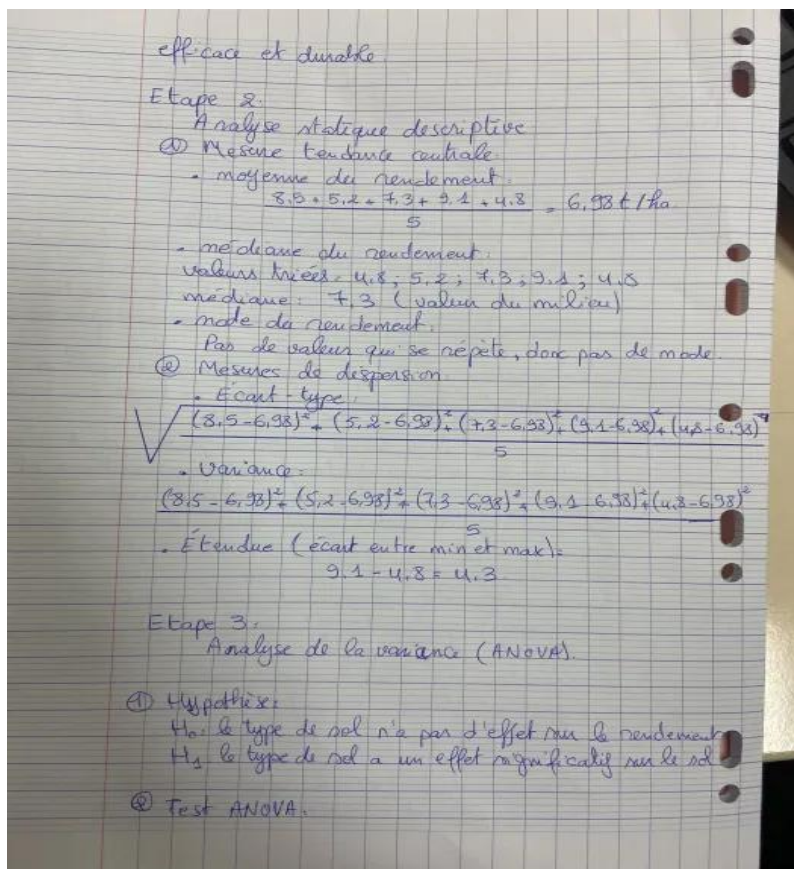 efficace et durable.
Etape 2.
Analyse statique descriptive
① Mesure tendance centrale.
• moyenne du rendement.
8,5 + 5,2 + 7,3 + 9,1 + 4,8
5
= 6,98 t/ha
• médiane du rendement.
valeurs triées. 4,8; 5,2; 7,3; 9,1; 4,8
médiane: 7,3 (valeur du milieu)
• mode du rendement.
Pas de valeur qui se répète, donc pas de mode.
② Mesures de dispersion.
• Écart-type.
√ (8,5-6,98)² + (5,2-6,98)² + (7,3-6,98)² + (9,1-6,98)² + (4,8-6,98)²
5
• Variance:
(8,5-6,98)² + (5,2-6,98)² + (7,3-6,98)² + (9,1-6,98)² + (4,8-6,98)²
5
• Étendue (écart entre min et max)=
9,1 - 4,8 = 4,3
Etape 3.
Analyse de la variance (ANOVA).
① Hypothèse:
H₀: le type de sol n'a pas d'effet sur le rendement
H₁ le type de sol a un effet significatif sur le sol
② Test ANOVA.